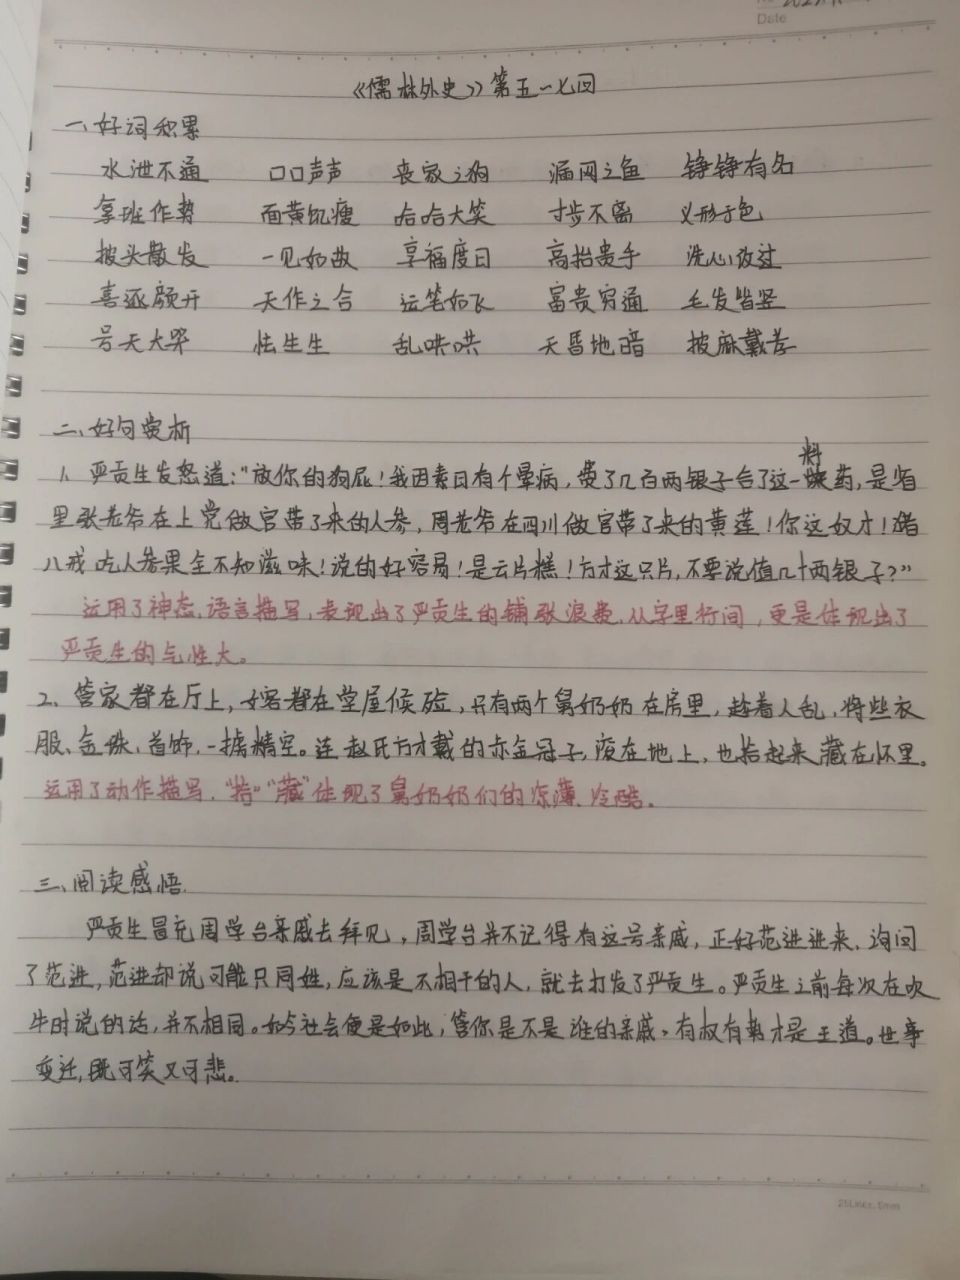 Date
《儒林外史》第五一七回
一、好词积累
水泄不通 口口声声 丧家之狗 漏网之鱼 铮铮有名
拿班作势 面黄肌瘦 哈哈大笑 寸步不离 义形于色
披头散发 一见如故 享福度日 高抬贵手 洗心改过
喜逐颜开 天作之合 运笔如飞 富贵穷通 毛发皆竖
号天大哭 怯生生 乱哄哄 天昏地暗 披麻戴孝
二、好句赏析
料
1、严贡生发怒道:“放你的狗屁!我因素日有个晕病,费了几百两银子合了这一药,是省
里张老爷在上党做官带了来的人参,周老爷在四川做官带了来的黄莲!你这奴才!猪
八戒吃人参果全不知滋味!说的好容易!是云片糕!方才这几片,不要说值几十两银子?”
运用了神态、语言描写,表现出了严贡生的铺张浪费,从字里行间,更是体现出了
严贡生的气性大。
2、管家都在厅上,女客都在堂屋候殓,只有两个舅奶奶在房里,趁着人乱,将些衣
服、金珠、首饰,一掳精空。连赵氏方才戴的赤金冠子,滚在地上,也拾起来藏在怀里。
运用了动作描写,“拾”“藏”体现了舅奶奶们的凉薄、冷酷。
三、阅读感悟
严贡生冒充周学台亲戚去拜见,周学台并不记得有这号亲戚,正好范进进来,询问
了范进,范进却说可能只同姓,应该是不相干的人,就去打发了严贡生。严贡生之前每次在吹
牛时说的话,并不相同。如今社会便是如此,管你是不是谁的亲戚,有叔有势才是王道。世事
变迁,既可笑又可悲。
25Lines, 8mm